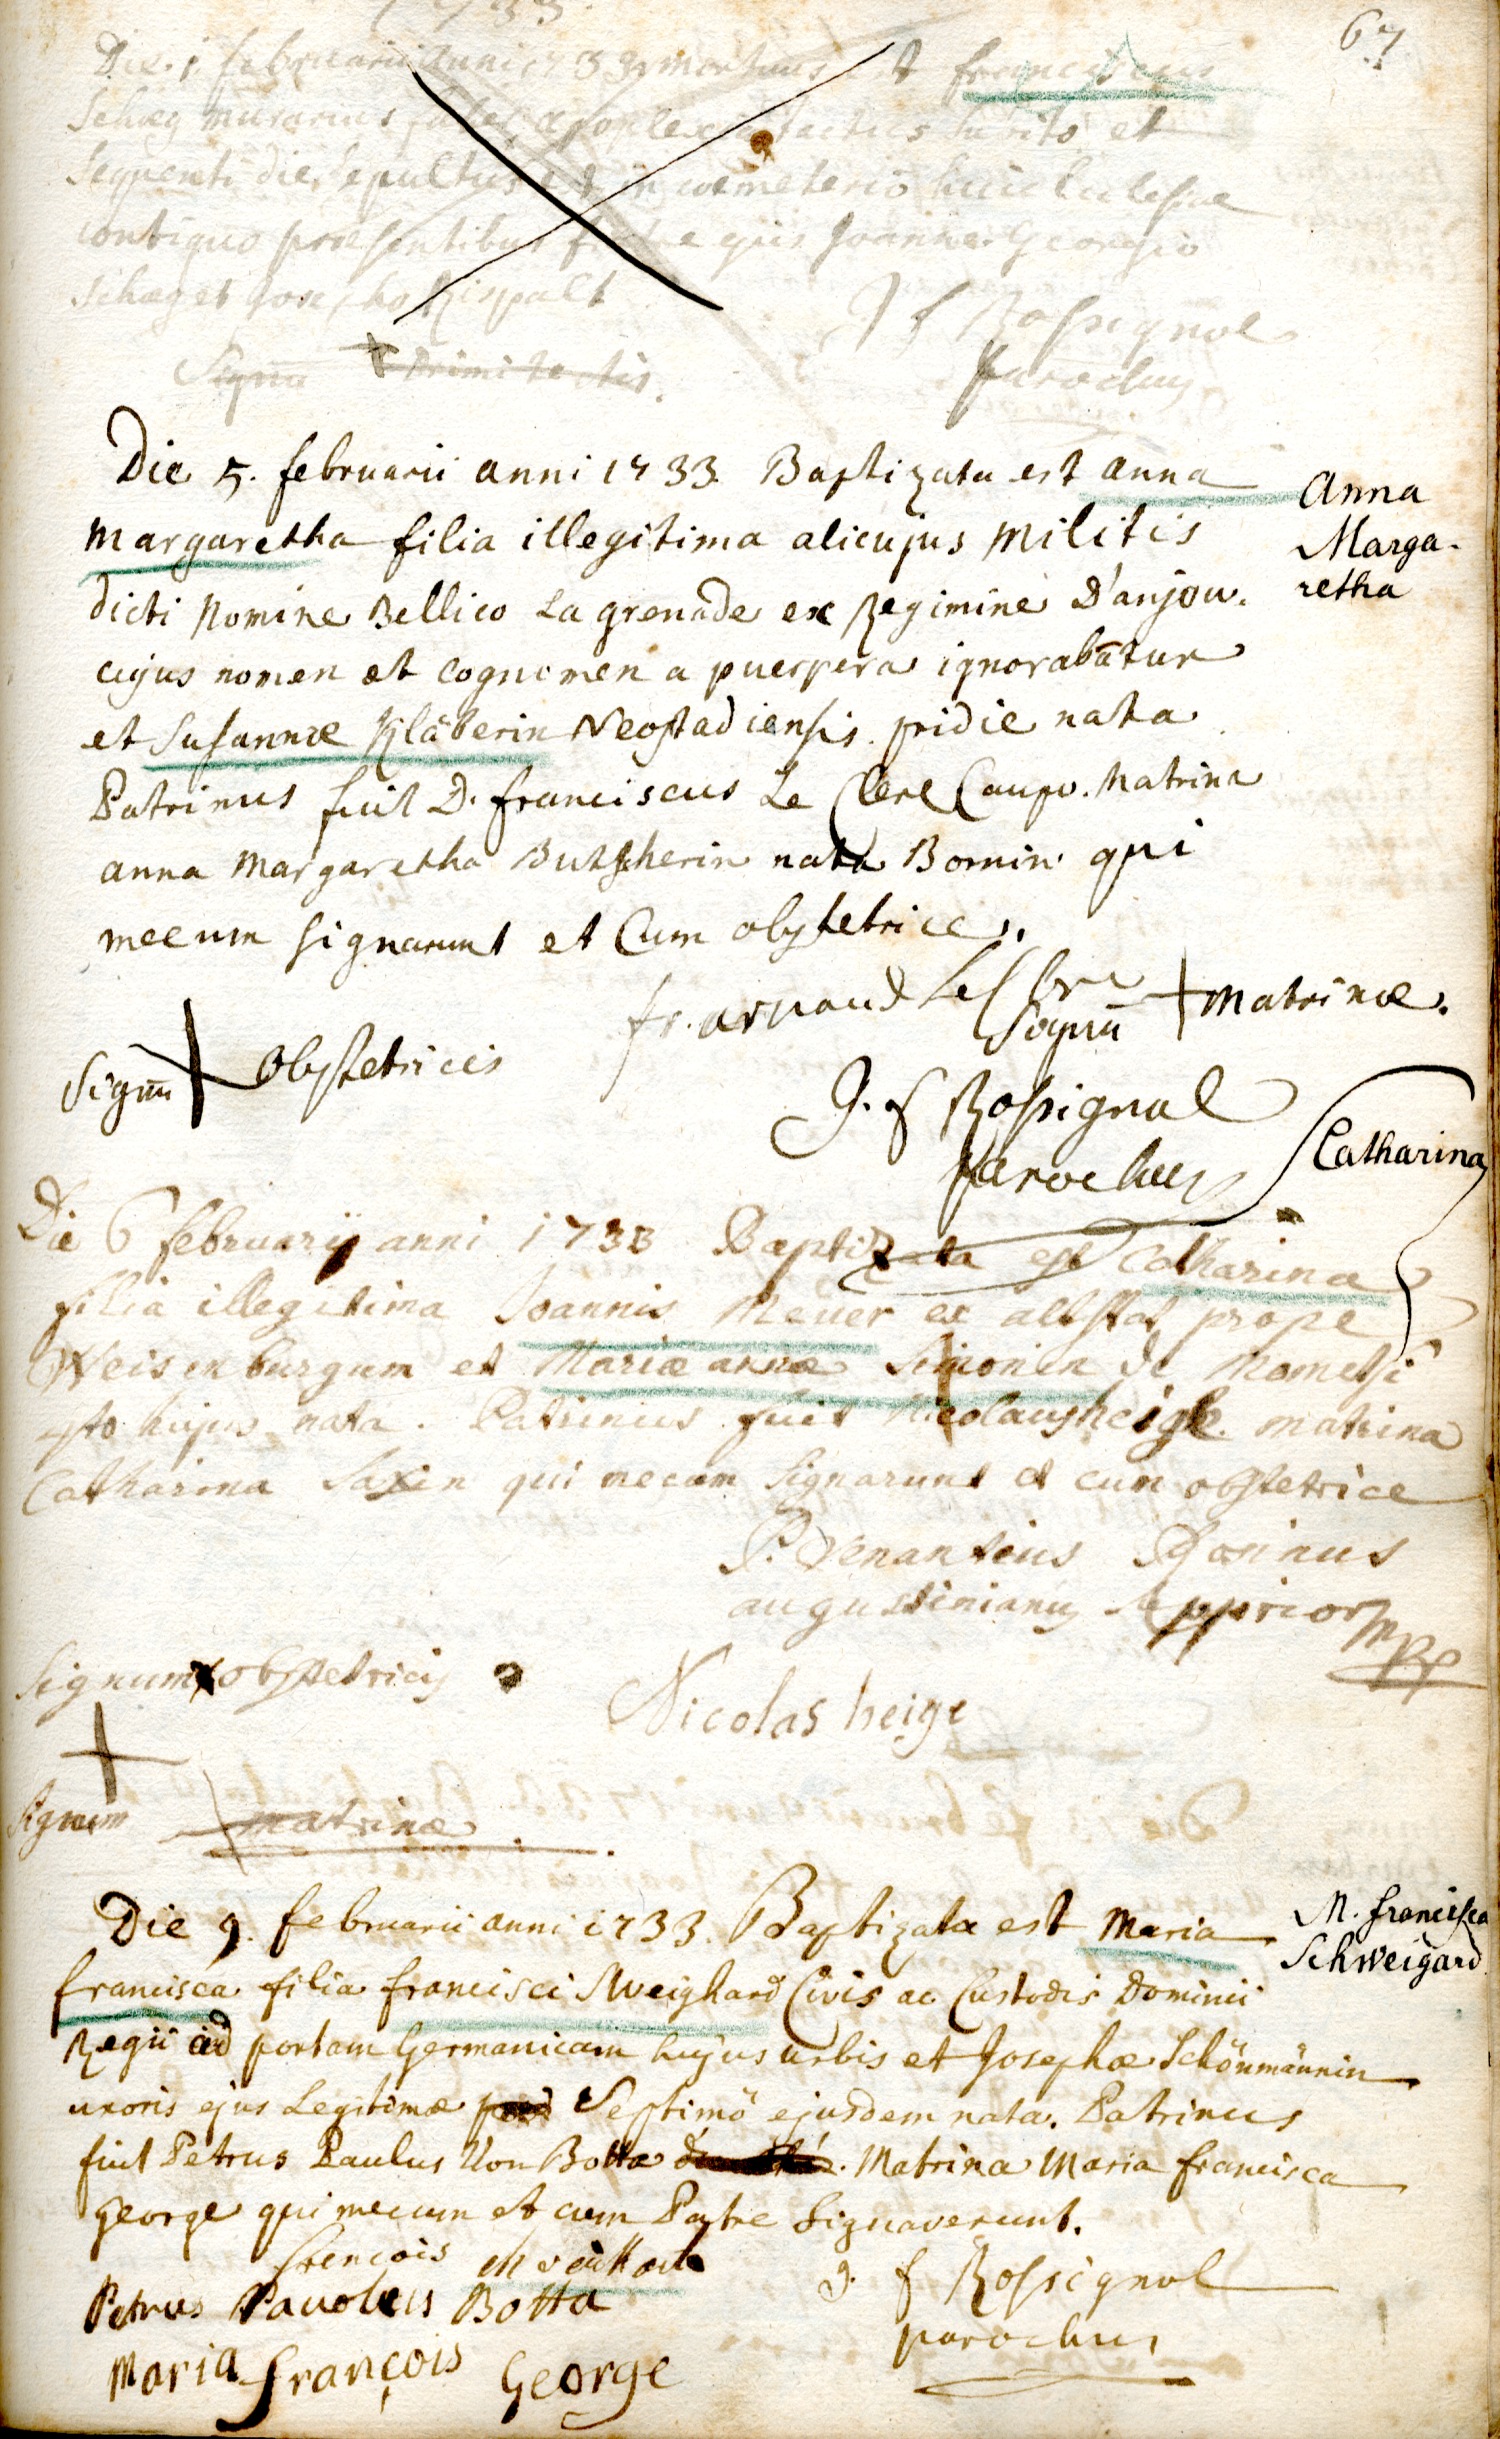 1733
67
Die 1 februarii anni 1733 mortuus est franciscus
Schag murarius faber apoplexia tactus subito et
sequenti die sepultus est in coemeterio huic Ecclesiae
contiguo praesentibus fratre ejus Joanne Georgio
Schag et Josepho
Signū + primi testis.
J f Rossignol
parochus
Die 5. februarii anni 1733. Baptizata est anna
Margaretha filia illegitima alicujus Militis
dicti Nomine Bellico La grenade ex Regimine D'anjou.
cujus nomen et cognomen a puerpera ignorabātur
et Susannae Kläberin Neostadiensis. pridie nata
Patrinus fuit D. franciscus Le Clerc Caupo. Matrina
anna Margaretha Butscherin nata Bornin qui
mecum signarunt et Cum obstetrice.
Anna
Marga-
retha
fr. arnaud
Signū + Matrinae.
Signū + Obstetricis
J. f Rossignol
parochus
Catharina
Die 6 februarij anni 1733 Baptizata est Catharina
filia illegitima Joannis Meuer ex altstat prope
Weisenburgum et Mariae annae Simonin de
hujus nata. Patrinus fuit Nicolaus heige. matrina
Catharina Saxin qui mecum signarunt et cum obstetrice
P. Venantius
augustinianus Supprior mpp
Signum x obstetricis
Nicolas heige
+
Signum matrinae.
Die 9. februarii anni 1733. Baptizata est Maria
francisca filia francisci Sweighard Civis ac Custodis Dominii
Regii ad portam Germanicam hujus urbis et Josephae Schönmännin
uxoris ejus Legitimae Septimo ejusdem nata. Patrinus
fuit Petrus Paulus Von Botta. Matrina Maria francisca
george qui mecum et cum Patre Signaverunt.
M. francisca
Schweigard
frencois
Petrus Pauolus Botta
J. f Rossignol
parochus
Maria François George